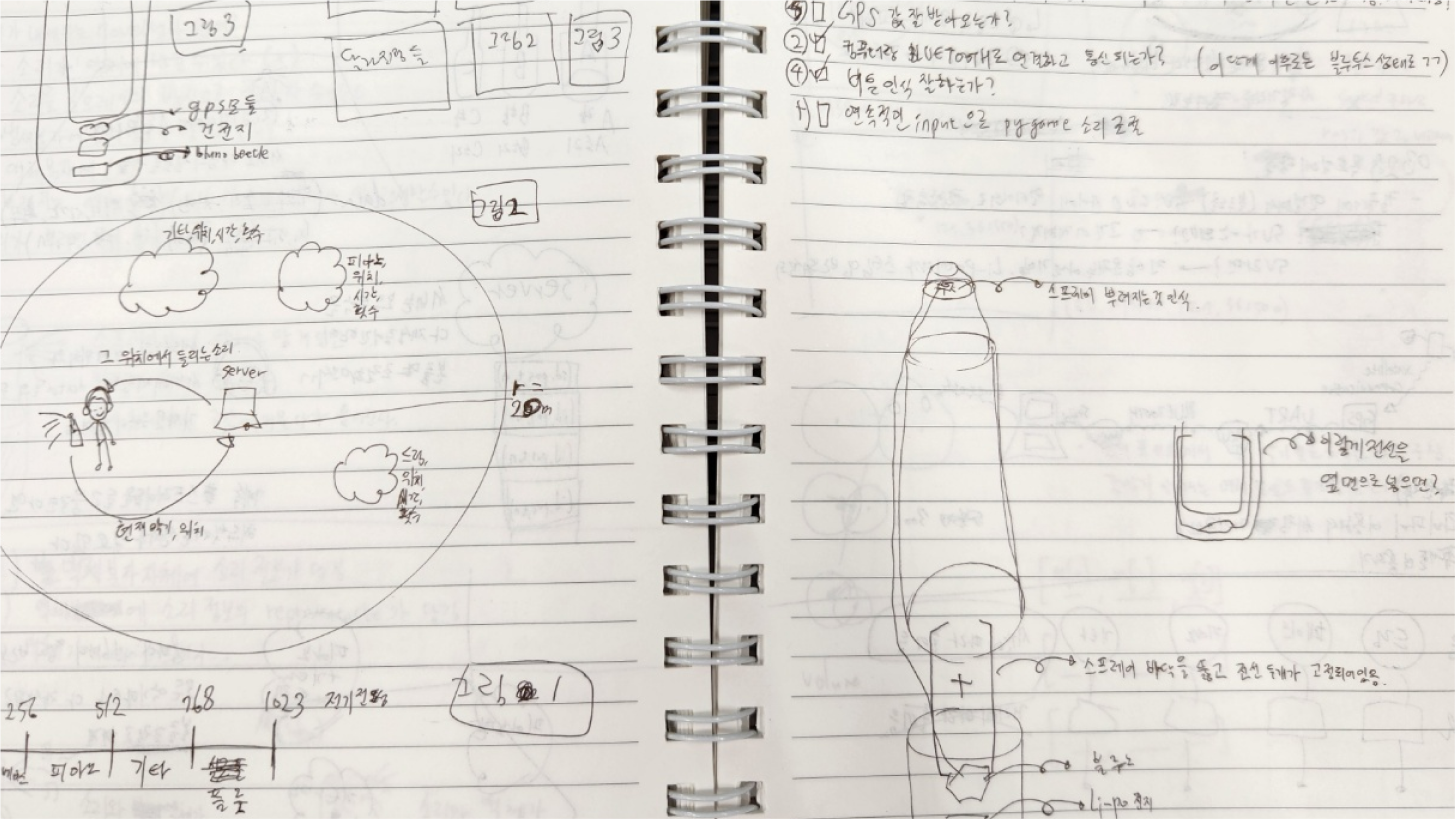 그림3
달라진점들
그림2
그림3
gps모듈
건전지
bluno beetle
그림2
기타, 위치, 시간, 횟수
피아노,
위치,
시간,
횟수
그 위치에서 들리는소리
server
r=
20m
드럼,
위치
시간,
횟수
현재 악기, 위치
256 512 768 1023
피아노 기타
플룻
그림 1
⑤ GPS 값 잘 받아오는가?
② 컴퓨터랑 BLUETooth로 연결하고 통신 되는가?
④ 버튼 인식 잘하는가?
1) 연속적인 input으로 pygame 소리 출력
스프레이 뿌려지는것 인식.
이렇게 전선을
옆면으로 넣으면?
스프레이 바닥을 뚫고 전선 두개가 고정되어있음.
블루노
Li-po 전지